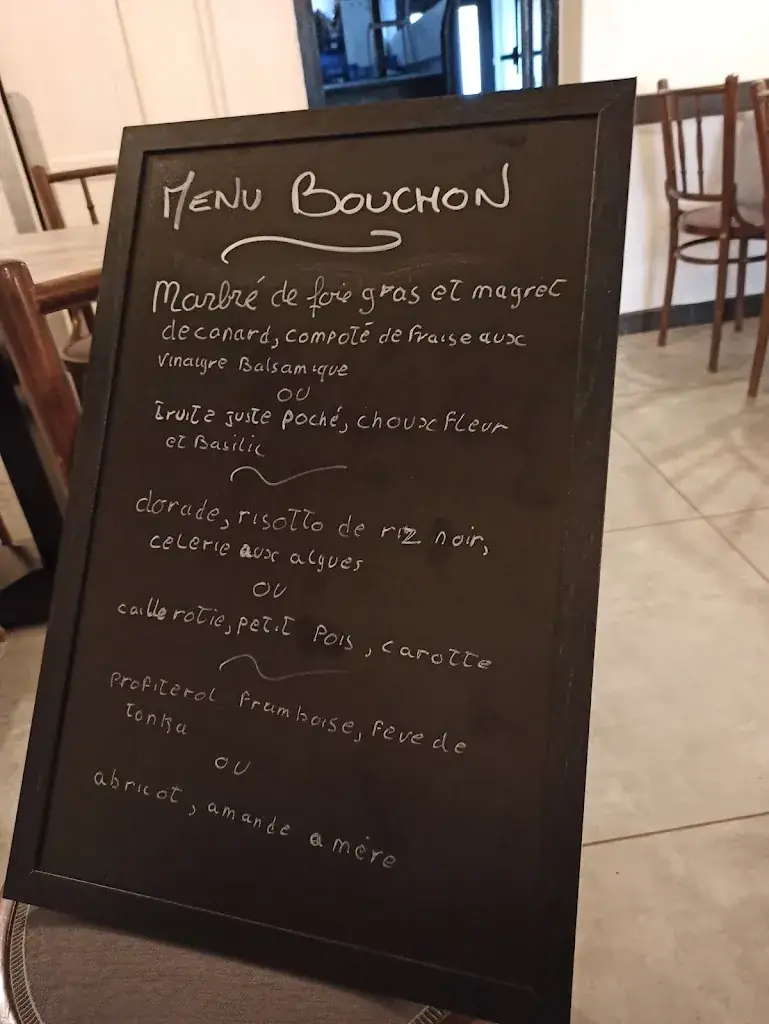 MENU BOUCHON
Marbré de foie gras et magret
de canard, compoté de fraise aux
vinaigre Balsamique
OU
truite juste poché, choux fleur
et Basilic
dorade, risotto de riz noir,
celerie aux algues
OU
caille rotie, petit pois, carotte
profiterol framboise, feve de
tonka
OU
abricot, amande amère